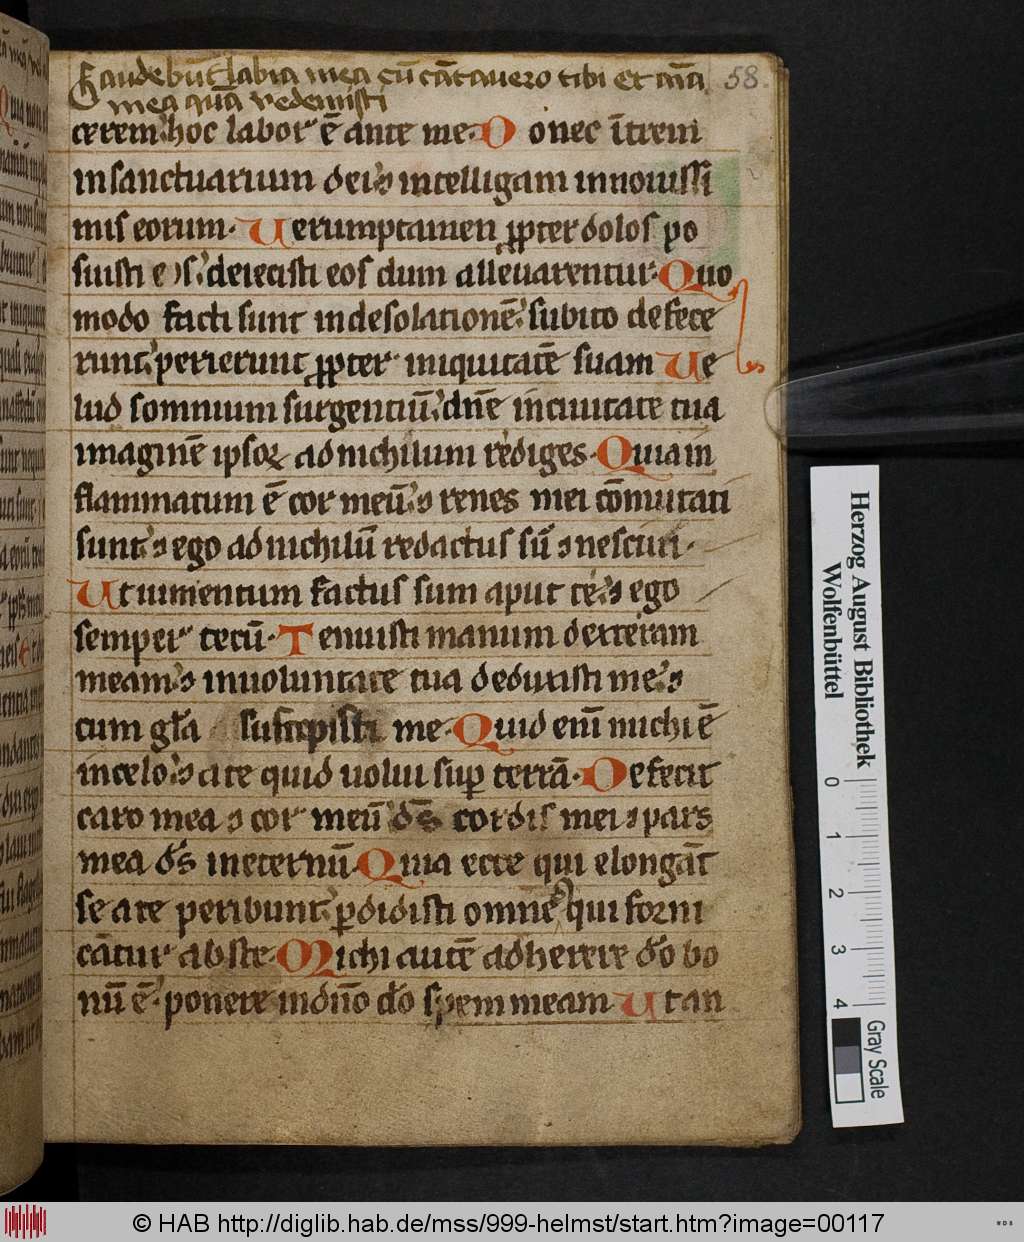 Gaudebūt labia mea cū cātauero tibi et aīa
58.
mea quā redemisti
cerem hoc labor ē ante me. Donec ītrem
in sanctuarium dei ⁊ intelligam in nouissi
mis eorum. Uerumptamen ꝓpter dolos po
suisti e s deiecisti eos dum alleuarentur. Quo
modo facti sunt in desolationē subito defece
runt perierunt ꝓpter iniquitatē suam Ue
lud somnium surgentiū dn̄e in ciuitate tua
imaginē ipsoꝝ ad nichilum rediges. Quia in
flammatum ē cor meū ⁊ renes mei cōmutati
sunt ⁊ ego ad nichilū redactus sū ⁊ nesciui.
Ut iumentum factus sum aput te ⁊ ego
semper tecū. Tenuisti manum dexteram
meam ⁊ in uoluntate tua deduxisti me ⁊
cum gl̄a suscepisti me. Quid enī michi ē
in celo ⁊ a te quid uolui suꝑ terrā. Defecit
caro mea ⁊ cor meū ds̄ cordis mei ⁊ pars
mea ds̄ in eternū. Quia ecce qui elongāt
se a te peribunt ꝑdidisti omnē qui forni
cātur abs te. Michi autē adherere do̅ bo
nū ē ponere in dn̄o do̅ spem meam. Ut an
Herzog August Bibliothek
Wolfenbüttel
0 1 2 3 4
Gray Scale
© HAB http://diglib.hab.de/mss/999-helmst/start.htm?image=00117